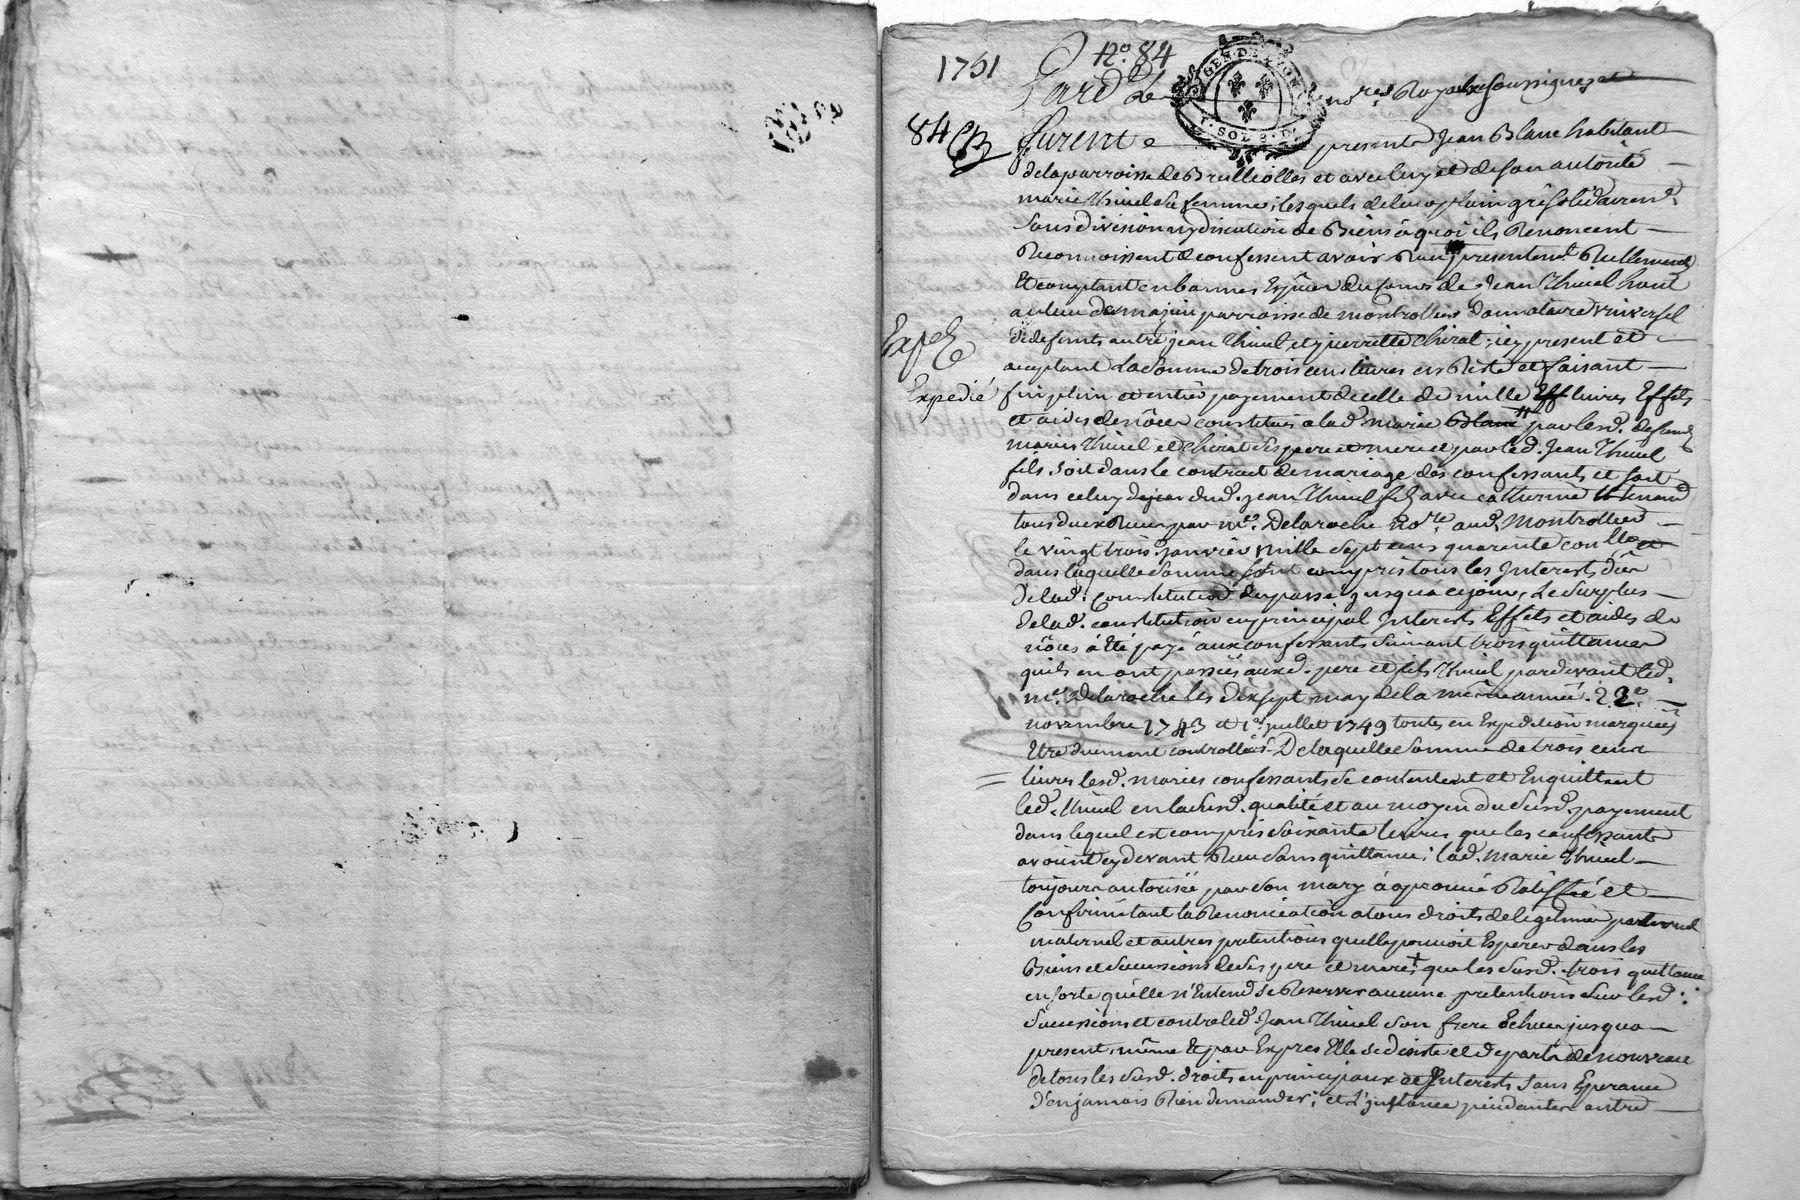 1761
n.° 84
GEN. DE LYON
SOL 8. D.
Pard. le no.res Royalx soussignez
84
furent presents Jean Blanc habitant
de la parroisse de Brullioles et avec luy et de son autorité
marie Thivel sa femme; lesquels de leur plain gré solidairem.t
sans division ny discution de Biens à quoi ils Renoncent
Reconnoissent & confessent avoir Reçu presentem.t Reellement
Et comptant en bonnes Espèces du sieur de Jean Thivel
au lieu de majin parroisse de montrottier donnataire Vniversel
de defunts autre jean Thivel et pierrette Chirat; icy present et
acceptant La somme de trois cens livres en Reste et faisant
Expedié
fin plein et entier payement de celle de mille livres Effets
et aides de nôces constitués a lad. marie Blanc par lesd. defunts
mariés Thivel et Chirat ses pere et mere et par led. Jean Thivel
fils, soit dans le contract de mariage des confessants et soit
dans celuy dud. jean Thivel fils avec catherine
tous deux Reçus par m.e Delaroche no.re aud. Montrottier
le vingt trois janvier mille sept cens quarente
dans laquelle somme sont compris tous les Interests dûs
de lad. Constitution du passé jusqu'à ce jour, Le surplus
de lad. constitution en principal Interests Effets et aides de
nôces à été payé aux confessants suivant trois quittances
qu'ils en ont passées auxd. pere et fils Thivel pardevant led.
m.e Delaroche les dixsept may de la même année, 22.e
novembre 1743 et 1.er juillet 1749 toutes en Expedition marquées
Etre duement controllées. De laquelle somme de trois cens
livres lesd. mariés confessants se contentent et En quittent
led. Thivel en lasusd. qualité et au moyen du susd. payement
dans lequel est compris soixante livres que les confessants
avoient cy devant Reçu sans quittance; lad. marie Thivel
toujours autorisée par son mary à aprouvé Ratiffié et
Confirmé tant la Renonciation a tous droits de legitime paternel
maternel et autres pretentions qu'elle pouvoit Esperer dans les
Biens et successions de ses pere et mere + que les susd. trois quittances
en sorte qu'elle n'Entend se Reserver aucune pretentions sur lesd.
successions et contre led. Jean Thivel son frere Echues jusqu'a
present, même Et par Exprès Elle se desiste et departe de nouveau
de tous les susd. droits en principaux et Interests sans Esperance
d'en jamais Rien demander; et L'instance pendante entre